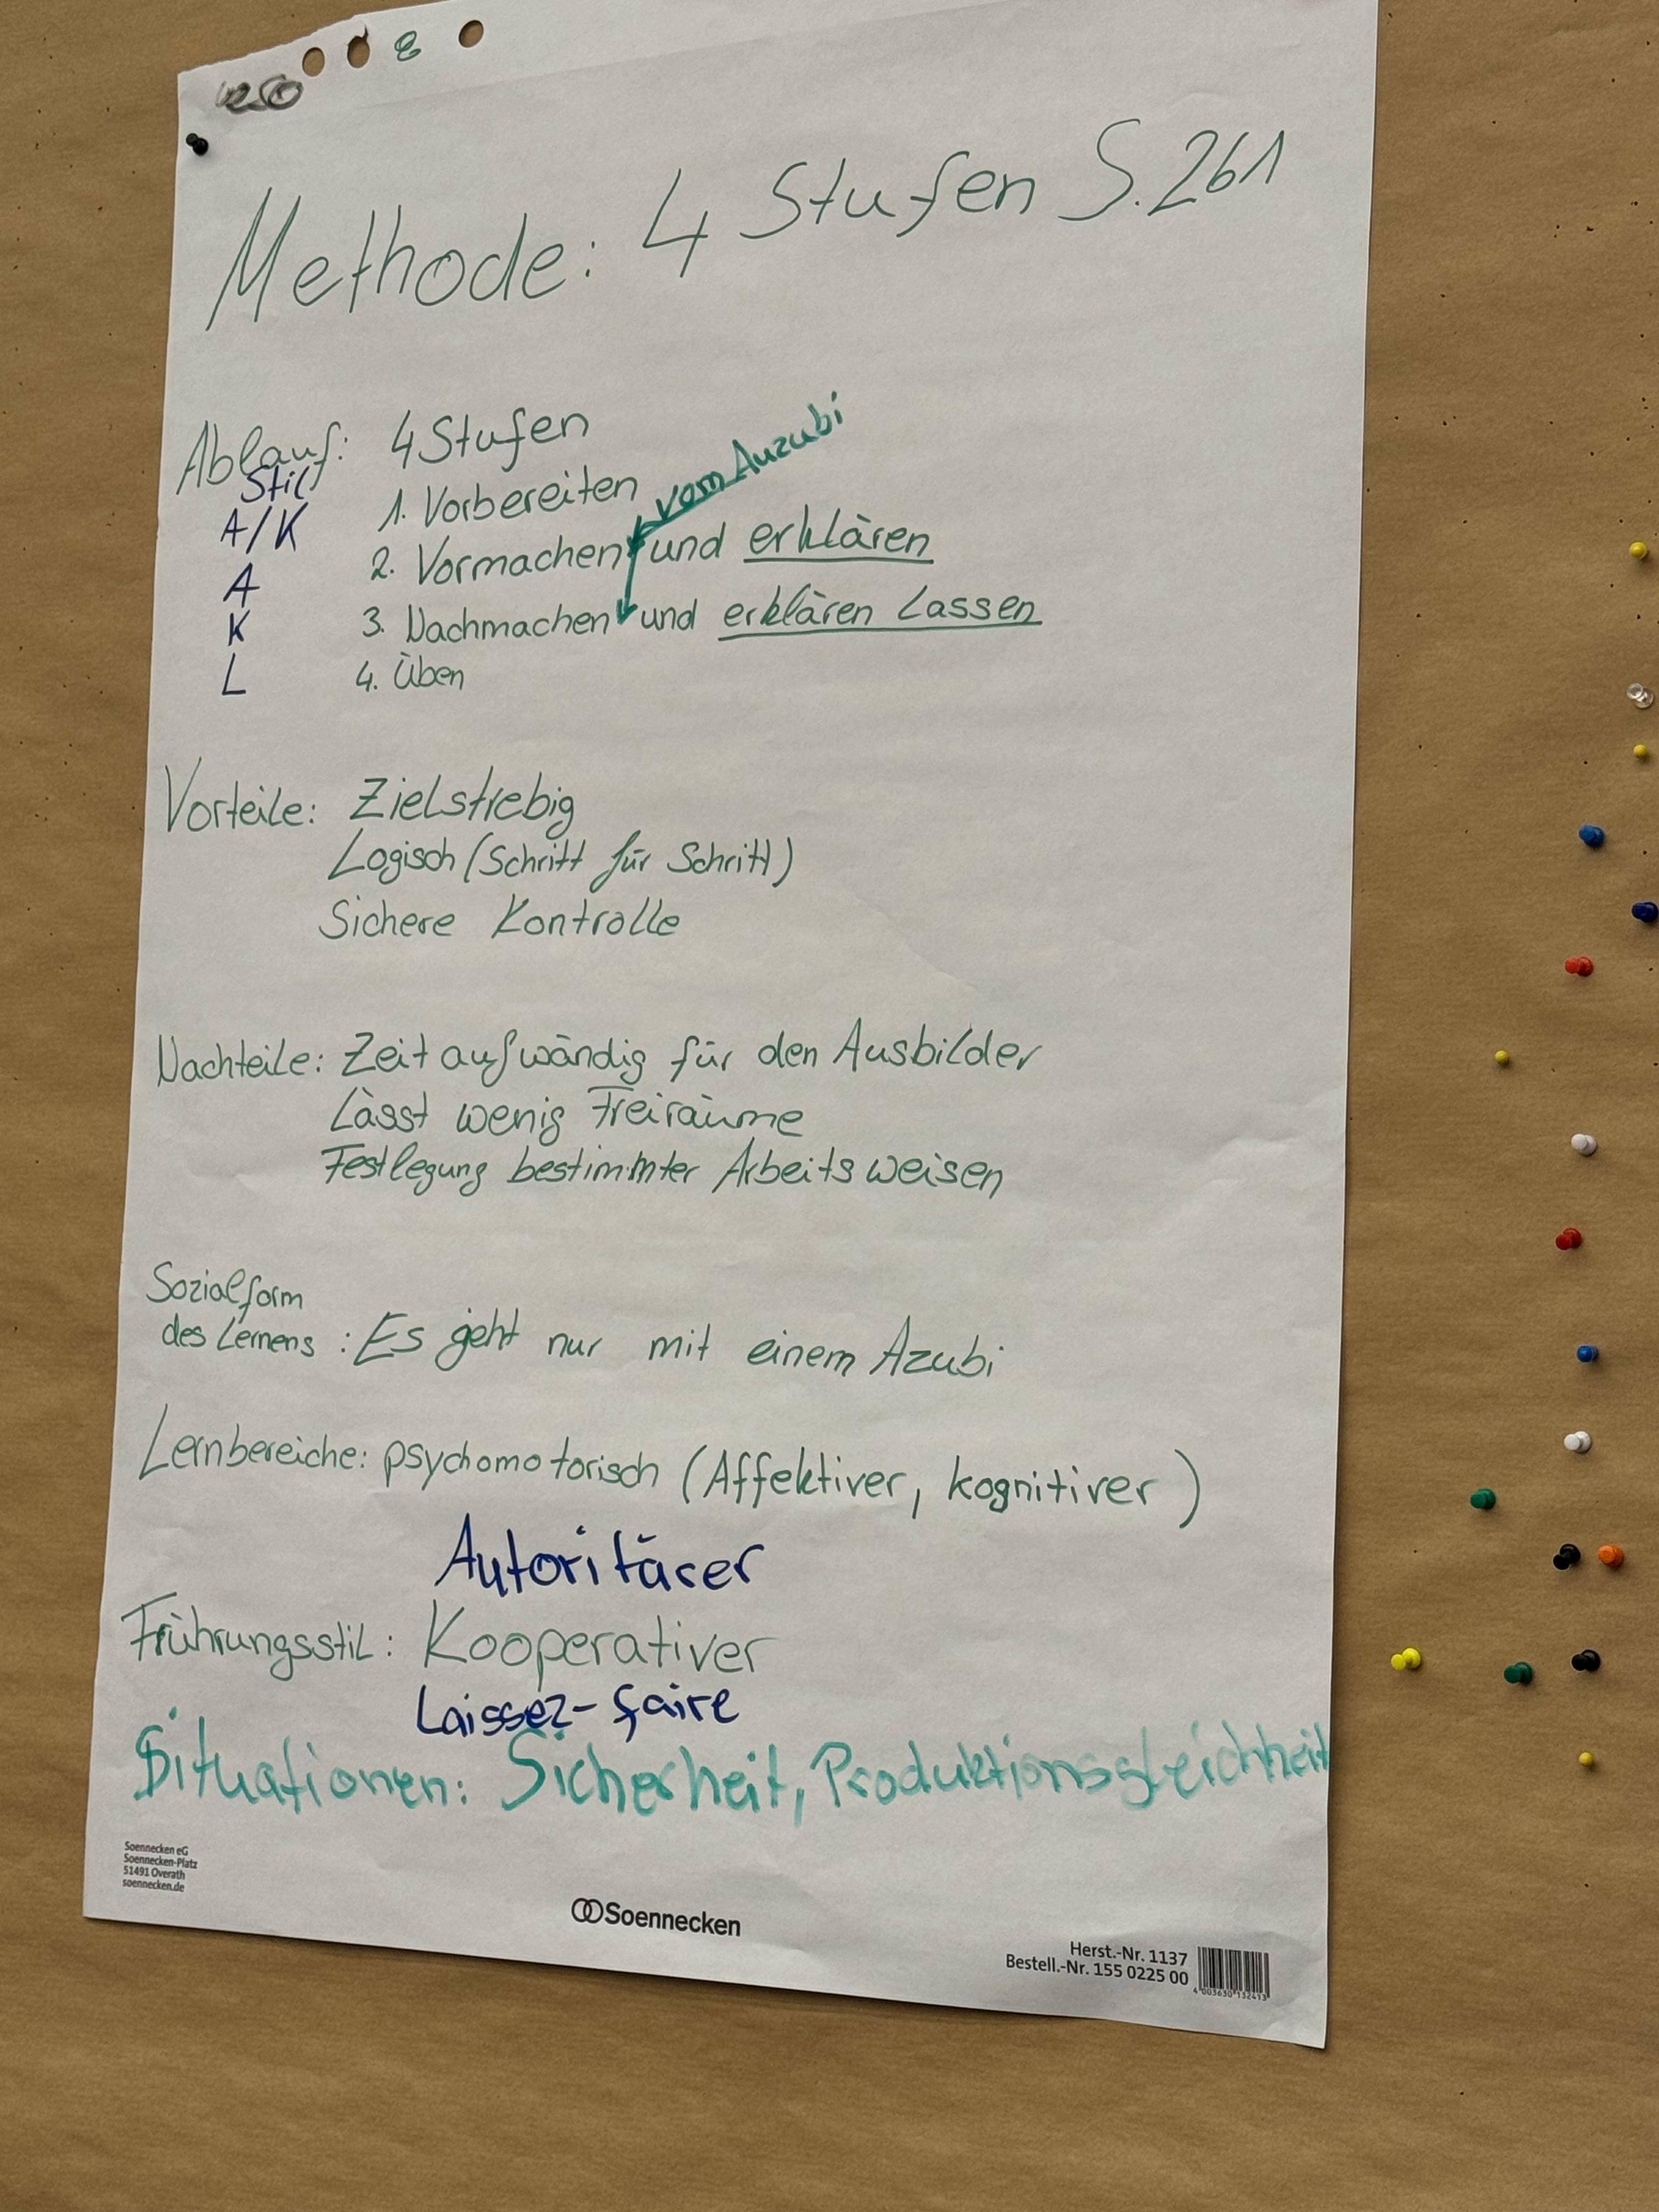 8
Methode: 4 Stufen S. 261
Ablauf: 4 Stufen
Stil
A/K 1. Vorbereiten
vom Auzubi
A 2. Vormachen und erklären
K 3. Nachmachen und erklären Lassen
L 4. Üben
Vorteile: Zielstrebig
Logisch (Schritt für Schritt)
Sichere Kontrolle
Nachteile: Zeit aufwändig für den Ausbilder
Lässt wenig Freiräume
Festlegung bestimmter Arbeitsweisen
Sozialform
des Lernens : Es geht nur mit einem Azubi
Lernbereiche: psychomotorisch (Affektiver, kognitiver)
Autoritärer
Frührungsstil: Kooperativer
Laissez-faire
Situationen: Sicherheit, Produktionsgleichheit
Soennecken eG
Soennecken-Platz
51491 Overath
soennecken.de
Soennecken
Herst.-Nr. 1137
Bestell.-Nr. 155 0225 00
4 003630 132413